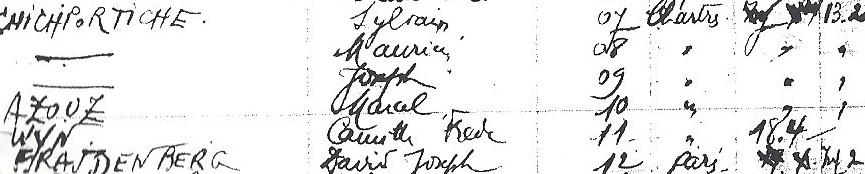 CHICHPORTICHE. Sylvain 07 Chartres 13.2
— Maurice 08 " " "
— Joseph 09 " " "
AZOUZ Marcel 10 " " "
WYN. Camille 11 " 18.4
BRAJDENBERG David Joseph 12 Paris